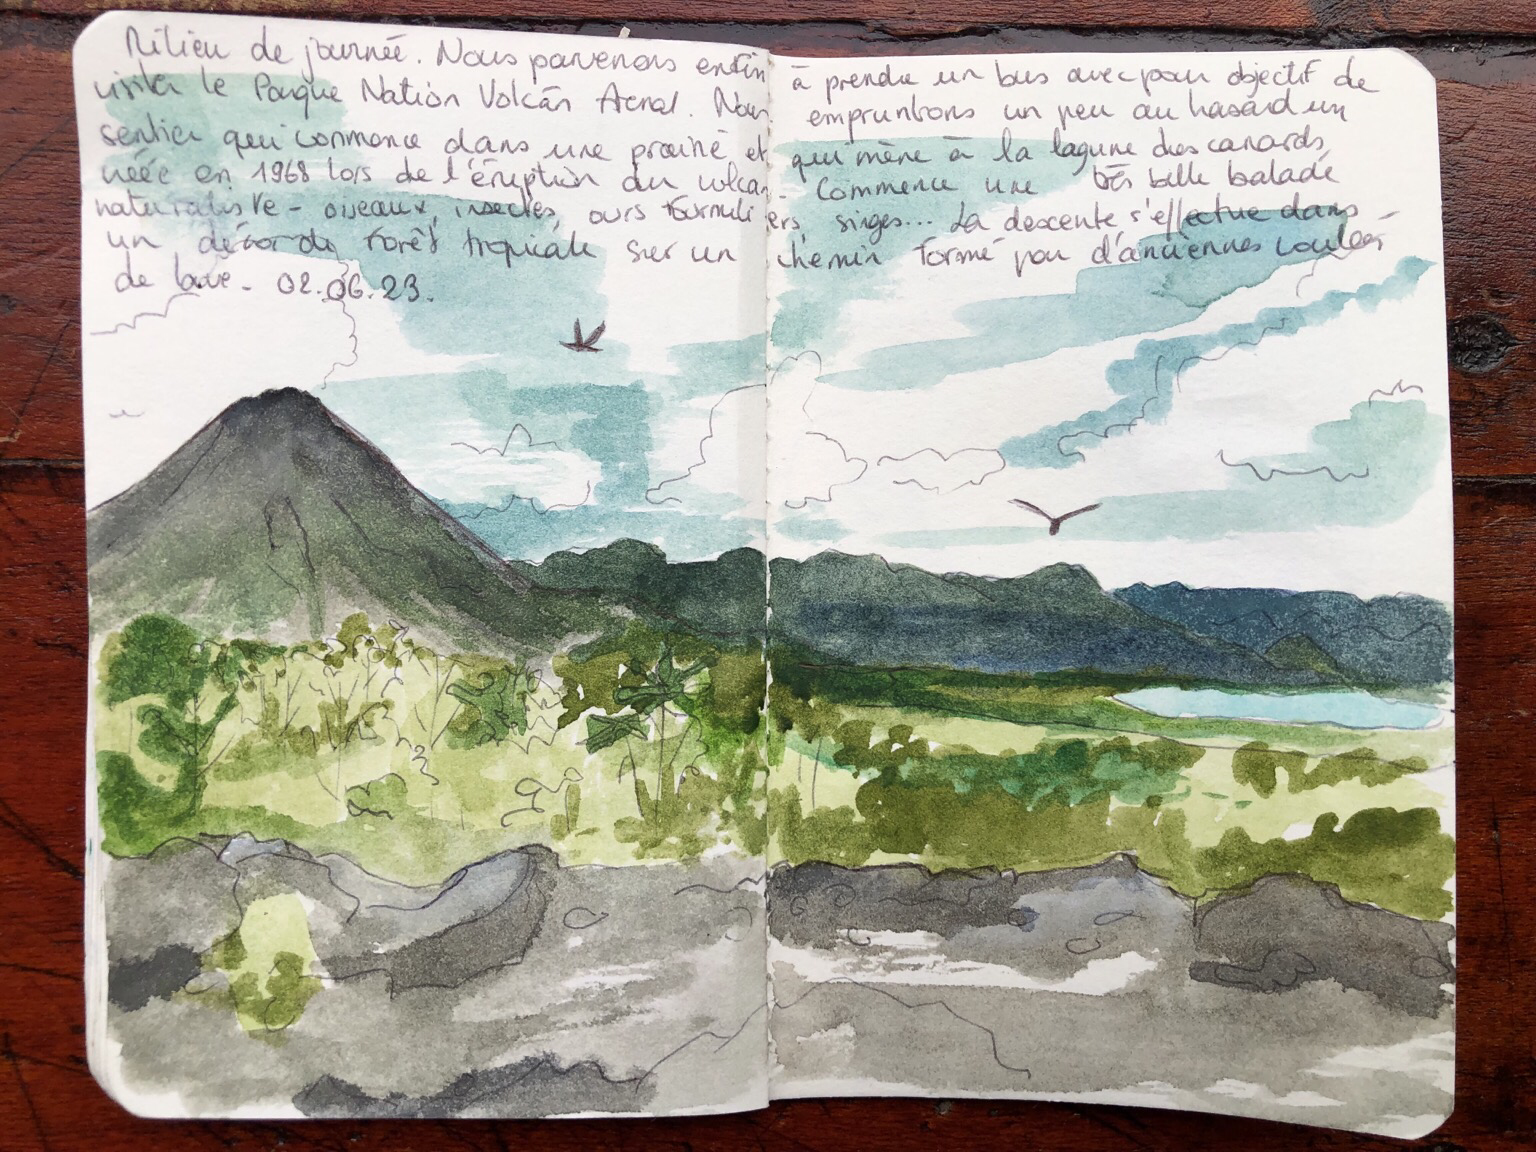 Milieu de journée. Nous parvenons enfin à prendre un bus avec pour objectif de
visiter le Parque Nation Volcán Arenal. Nous empruntons un peu au hasard un
sentier qui commence dans une prairie et qui mène à la lagune des canards,
née en 1968 lors de l'éruption du volcan. Commence une très belle balade
naturaliste - oiseaux, insectes, ours fourmiliers, singes... La descente s'effectue dans
un forêt tropicale sur un chemin formé par d'anciennes coulées
de lave. 02.06.23.